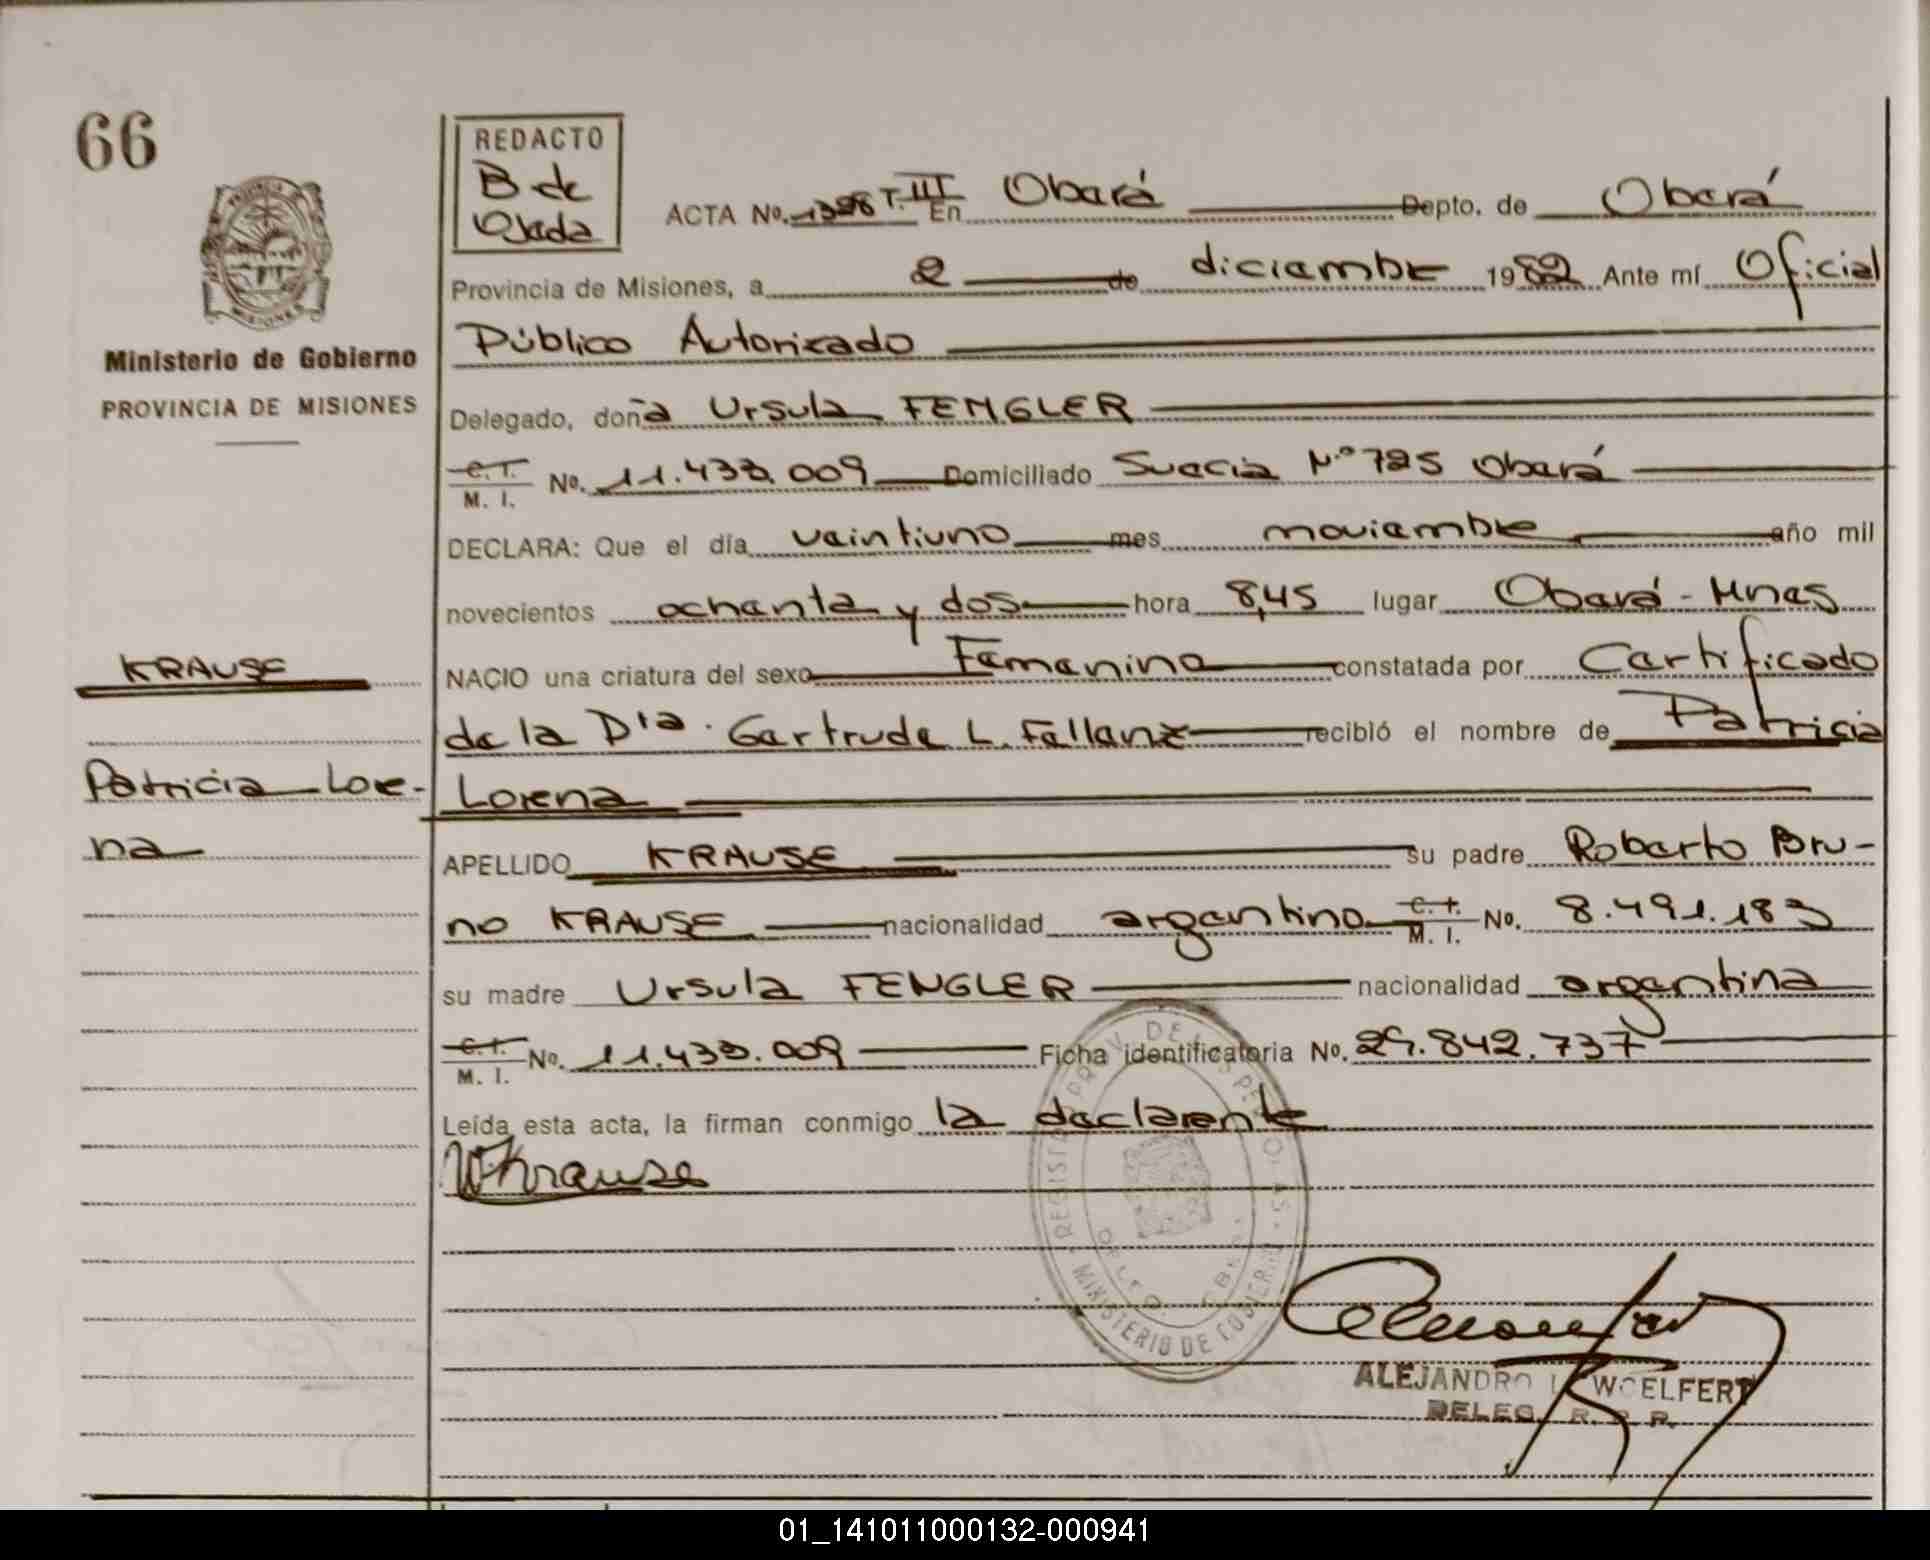 66
REDACTO
B de
Ojeda
ACTA No. 1398 T. III En Oberá Depto. de Oberá
Provincia de Misiones, a 2 de diciembre 1982 Ante mí Oficial
Público Autorizado
Ministerio de Gobierno
PROVINCIA DE MISIONES
Delegado, doña Ursula FENGLER
C. I.
M. I. No. 11.433.009 Domiciliado Suecia Nº 725 Oberá
DECLARA: Que el día veintiuno mes noviembre año mil
novecientos ochenta y dos hora 8,45 lugar Oberá - Mnes
KRAUSE
NACIO una criatura del sexo Femenino constatada por Certificado
de la Dra. Gertrude L. Fallanz recibió el nombre de Patricia
Patricia Lore-
na
Lorena
APELLIDO KRAUSE su padre Roberto Bru-
no KRAUSE nacionalidad argentino C. I. M. I. No. 8.491.183
su madre Ursula FENGLER nacionalidad argentina
C. I.
M. I. No. 11.433.009 Ficha identificatoria No. 29.842.737
Leída esta acta, la firman conmigo la declarente
Krause
REGIST PROV. DE LAS PERSONAS
MINISTERIO DE GOBIERNO
ALEJANDRO L. WOELFERT
DELEG. R. P. P.
01_141011000132-000941